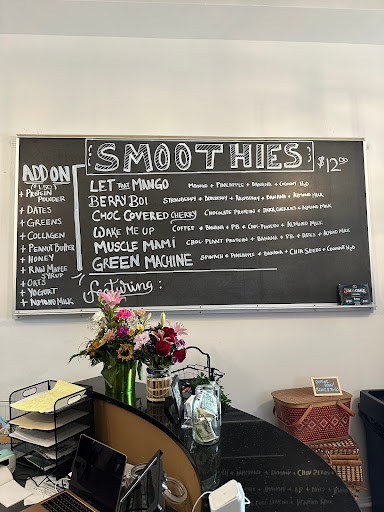 SMOOTHIES $12.00
ADD ON
($1.50)
+ PROTEIN POWDER
+ DATES
+ GREENS
+ COLLAGEN
+ PEANUT BUTTER
+ HONEY
+ RAW MAPLE SYRUP
+ OATS
+ YOGURT
+ ALMOND MILK
LET THAT MANGO MANGO + PINEAPPLE + BANANA + COCONUT H2O
BERRY BOI STRAWBERRY + BLUEBERRY + RASPBERRY + BANANA + ALMOND MILK
CHOC COVERED CHERRY CHOCOLATE PROTEIN + DARK CHERRIES + ALMOND MILK
WAKE ME UP COFFEE + BANANA + PB + CHOC PROTEIN + ALMOND MILK
MUSCLE MAMI CHOC PLANT PROTEIN + BANANA + PB + DATES + ALMOND MILK
GREEN MACHINE SPINACH + PINEAPPLE + BANANA + CHIA SEEDS + COCONUT H2O
Featuring :